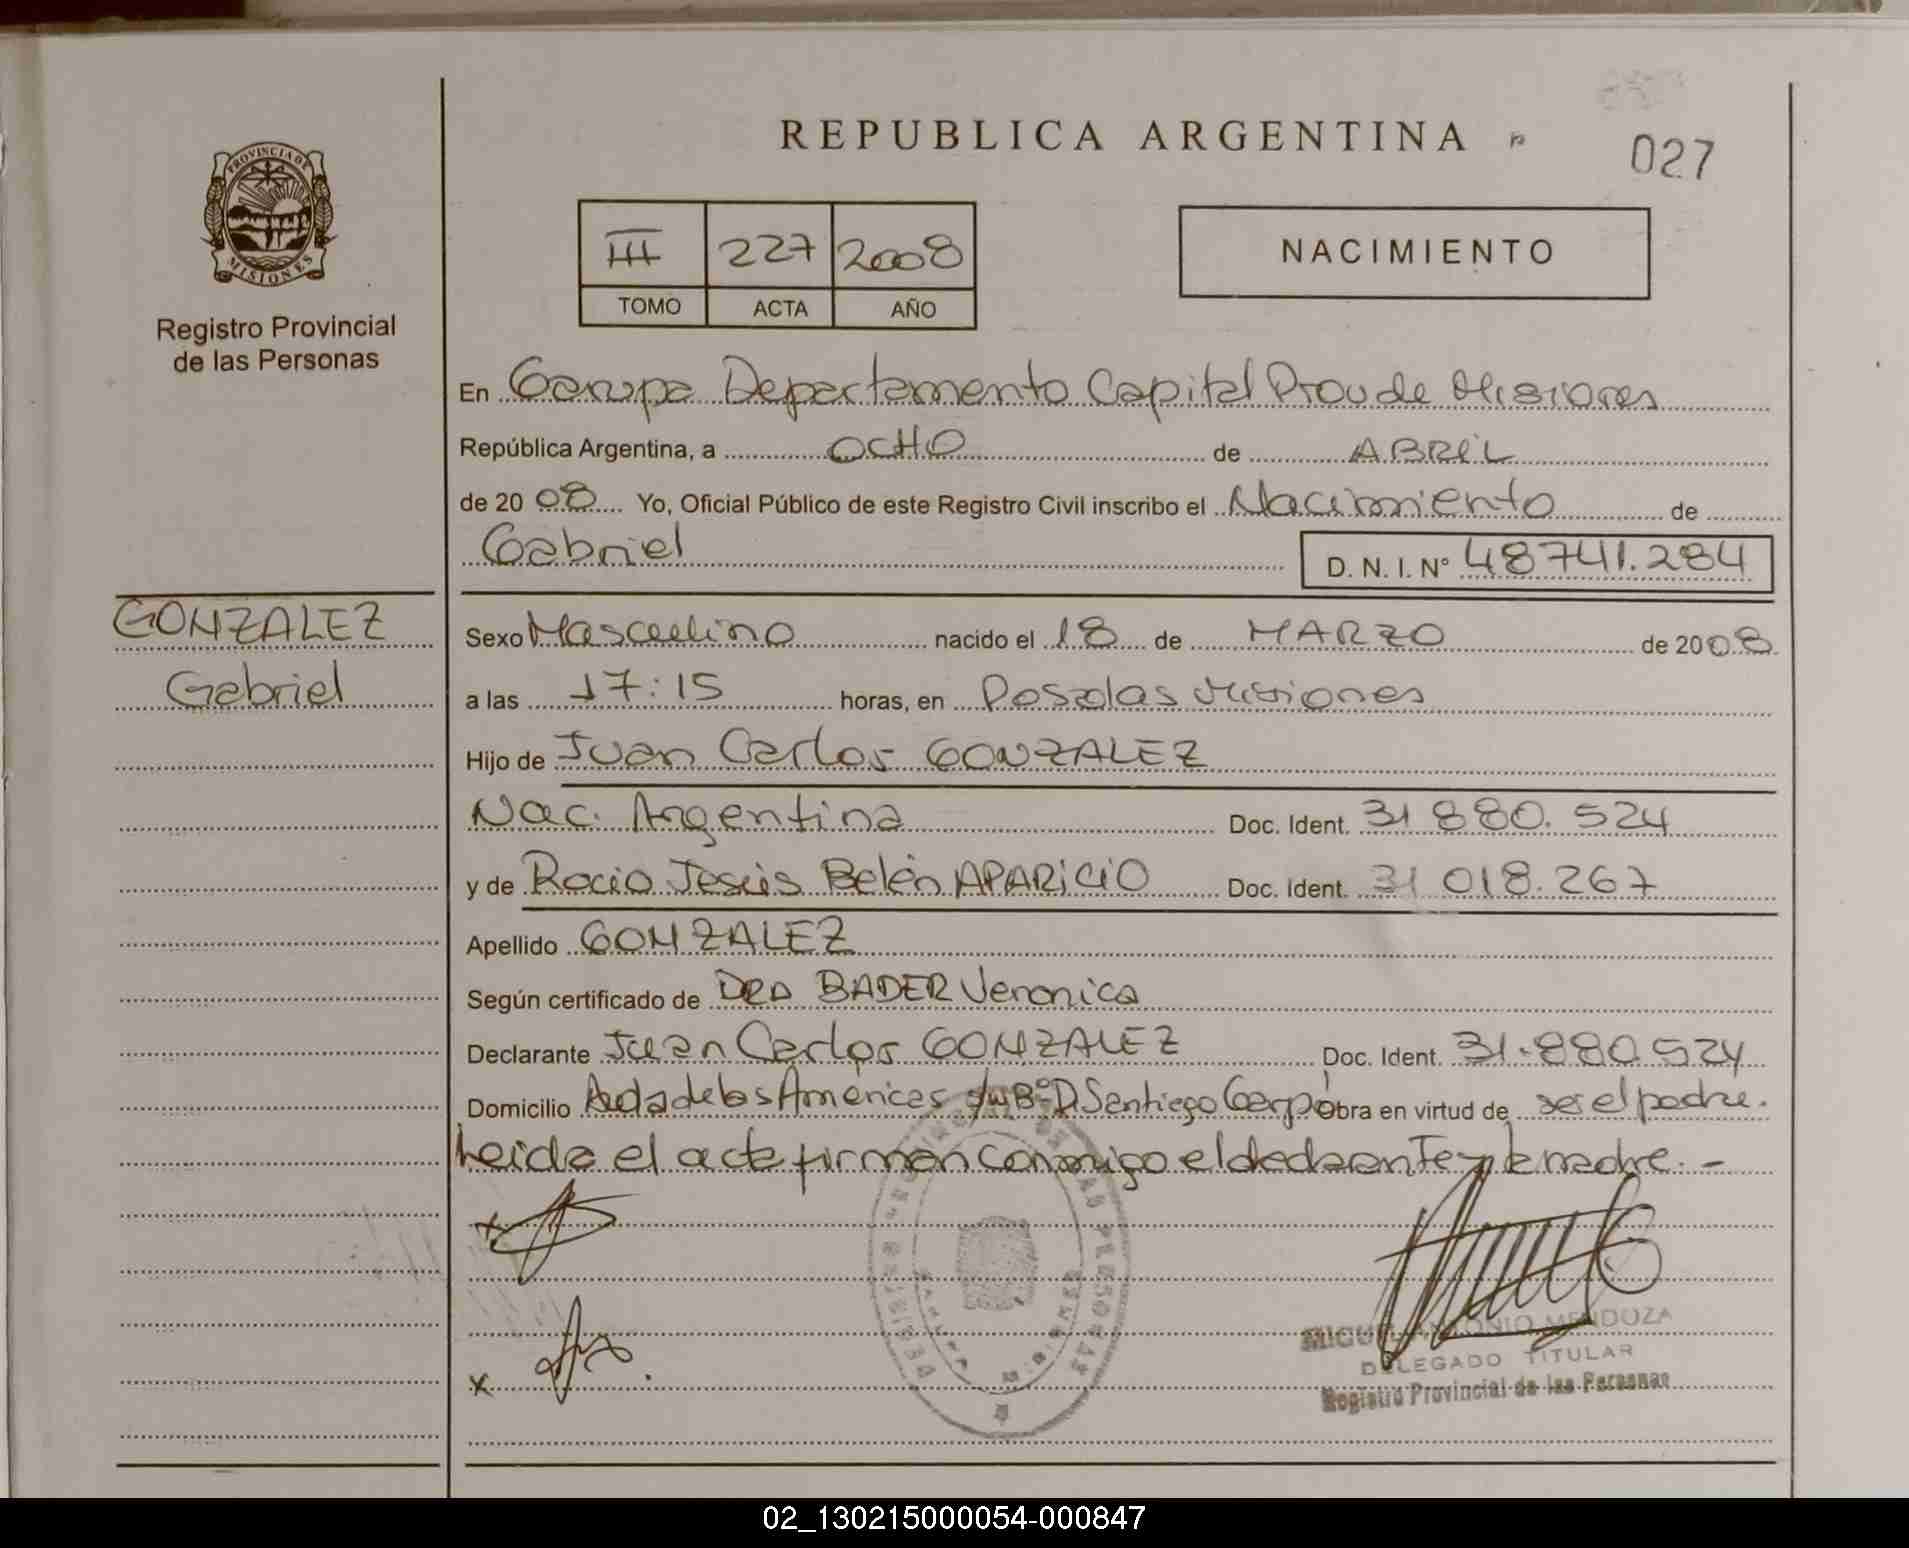 REPUBLICA ARGENTINA
027
PROVINCIA DE MISIONES
Registro Provincial
de las Personas
III 227 2008
TOMO ACTA AÑO
NACIMIENTO
En Garupa Departamento Capital Prov de Misiones
República Argentina, a OCHO de ABRIL
de 2008 Yo, Oficial Público de este Registro Civil inscribo el Nacimiento de
Gabriel D. N. I. Nº 48741.284
GONZALEZ
Gabriel
Sexo Masculino nacido el 18 de MARZO de 2008
a las 17:15 horas, en Posadas Misiones
Hijo de Juan Carlos GONZALEZ
Nac. Argentina Doc. Ident. 31 880. 524
y de Rocio Jesús Belén APARICIO Doc. Ident. 31 018.267
Apellido GONZALEZ
Según certificado de DRA BADER Veronica
Declarante Juan Carlos GONZALEZ Doc. Ident. 31.880.524
Domicilio Avda de las Américas s/n Bº D. Santiago Garupá obra en virtud de ser el padre.
Leida el acta firman conmigo el declarante y la madre. -
MIGUEL ANTONIO MENDOZA
DELEGADO TITULAR
Registro Provincial de las Personas
02_130215000054-000847